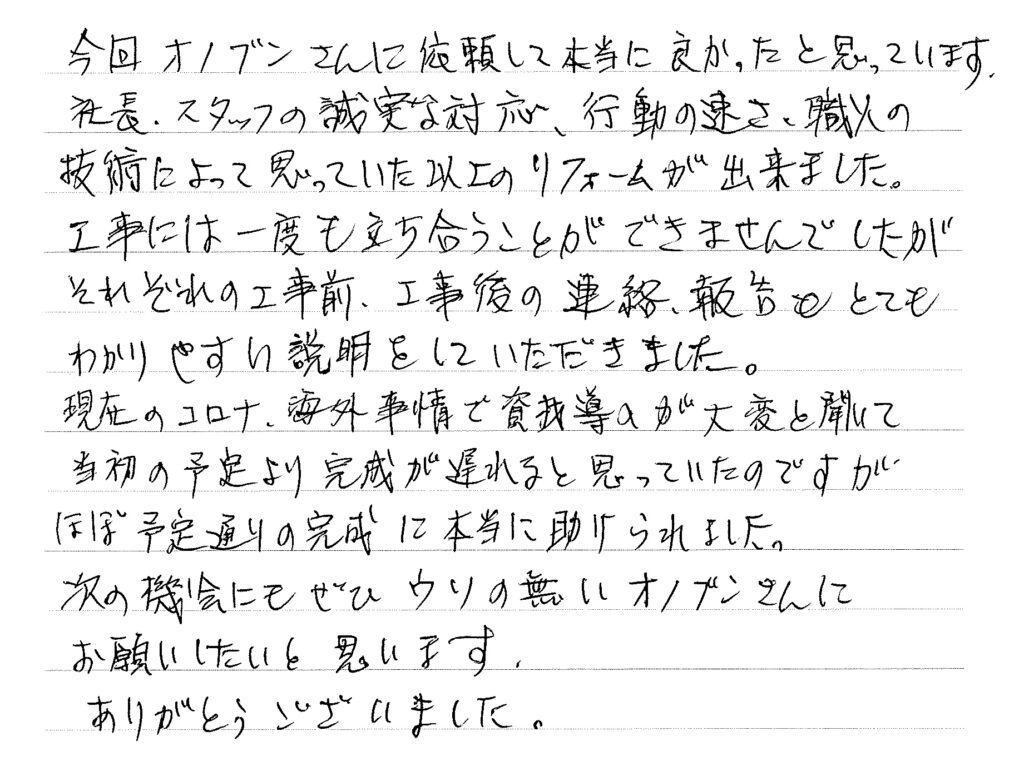 今回オノブンさんに依頼して本当に良かったと思っています.
社長.スタッフの誠実な対応、行動の速さ、職人の
技術によって思っていた以上のリフォームが出来ました。
工事には一度も立ち合うことができませんでしたが
それぞれの工事前、工事後の連絡、報告もとても
わかりやすい説明をしていただきました。
現在のコロナ、海外事情で資材導入が大変と聞いて
当初の予定より完成が遅れると思っていたのですが
ほぼ予定通りの完成に本当に助けられました。
次の機会にもぜひウソの無いオノブンさんに
お願いしたいと思います.
ありがとうございました。